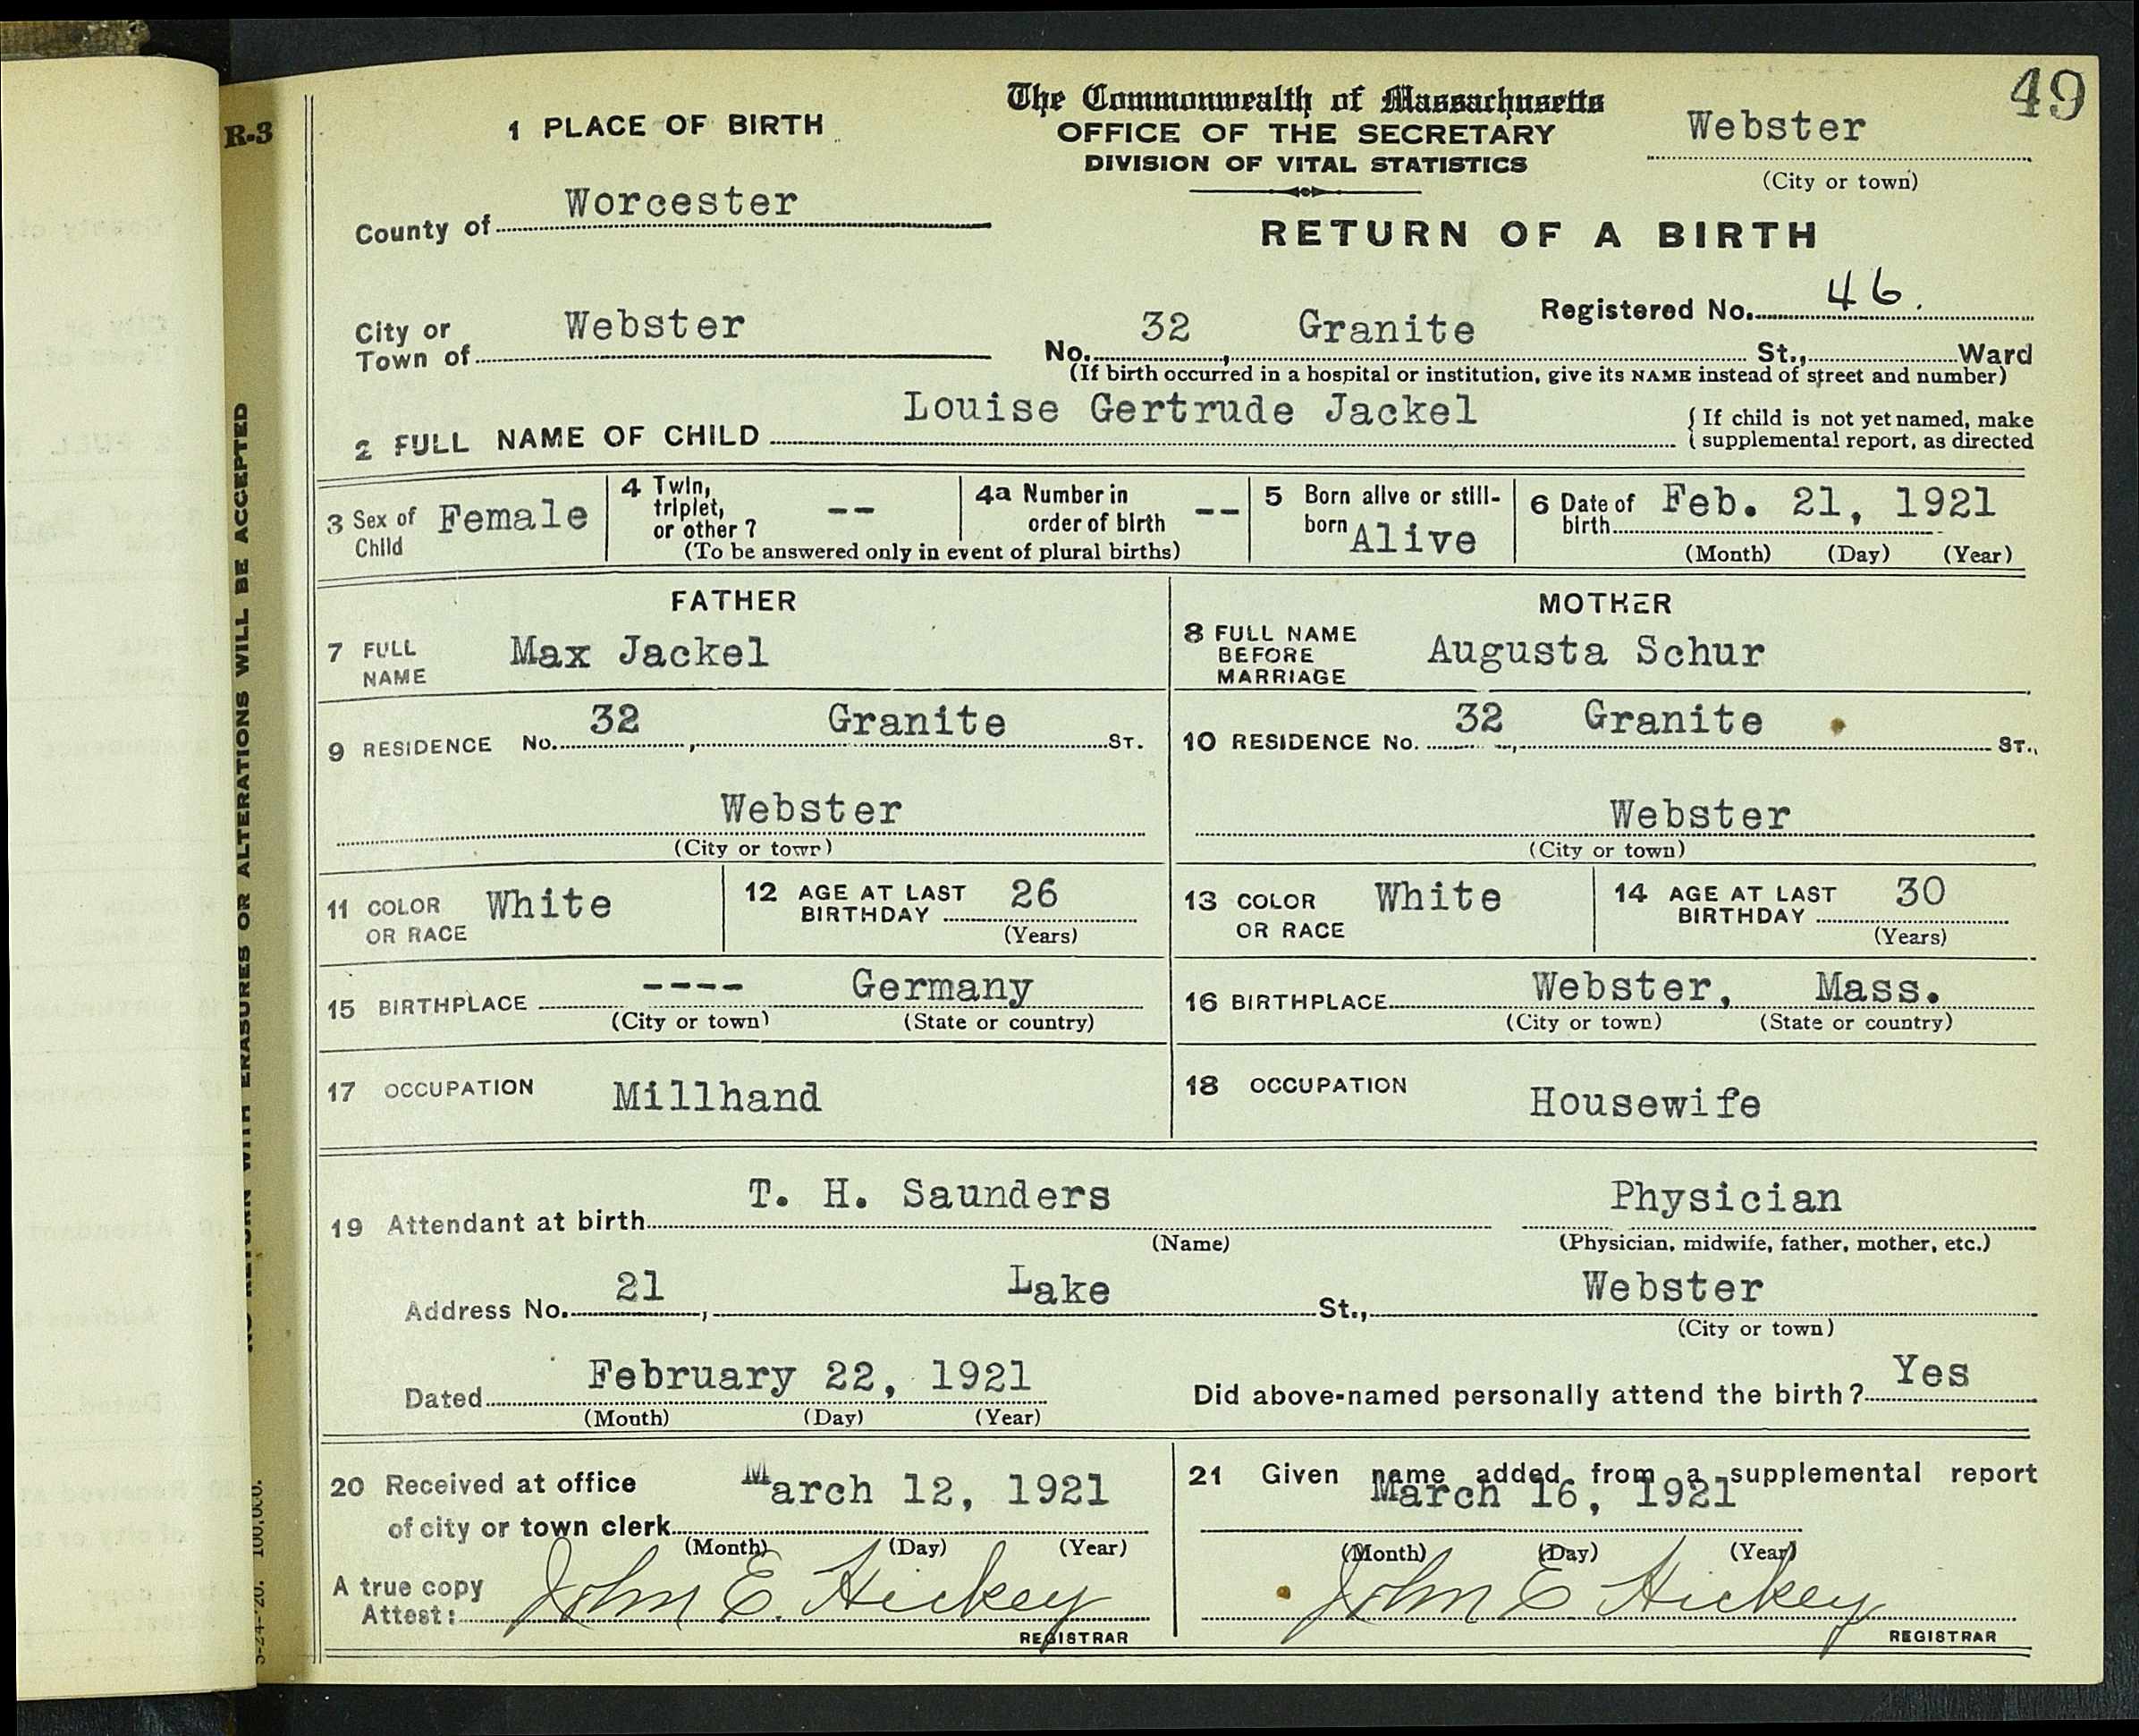 49
R-3
The Commonwealth of Massachusetts
1 PLACE OF BIRTH
OFFICE OF THE SECRETARY
Webster
DIVISION OF VITAL STATISTICS
(City or town)
County of Worcester
RETURN OF A BIRTH
Registered No. 46.
City or Town of Webster
No. 32, Granite St., Ward
(If birth occurred in a hospital or institution, give its NAME instead of street and number)
2 FULL NAME OF CHILD Louise Gertrude Jackel
{ If child is not yet named, make
{ supplemental report, as directed
3 Sex of Child Female
4 Twin, triplet, or other? --
4a Number in order of birth --
(To be answered only in event of plural births)
5 Born alive or still-born Alive
6 Date of birth Feb. 21, 1921
(Month) (Day) (Year)
FATHER
MOTHER
7 FULL NAME Max Jackel
8 FULL NAME BEFORE MARRIAGE Augusta Schur
9 RESIDENCE No. 32, Granite ST.
10 RESIDENCE No. 32, Granite ST.,
Webster
Webster
(City or town)
(City or town)
11 COLOR OR RACE White
12 AGE AT LAST BIRTHDAY 26
(Years)
13 COLOR OR RACE White
14 AGE AT LAST BIRTHDAY 30
(Years)
15 BIRTHPLACE ---- Germany
(City or town) (State or country)
16 BIRTHPLACE Webster, Mass.
(City or town) (State or country)
17 OCCUPATION Millhand
18 OCCUPATION Housewife
19 Attendant at birth T. H. Saunders Physician
(Name) (Physician, midwife, father, mother, etc.)
Address No. 21, Lake St., Webster
(City or town)
Dated February 22, 1921
(Month) (Day) (Year)
Did above-named personally attend the birth? Yes
20 Received at office of city or town clerk March 12, 1921
(Month) (Day) (Year)
A true copy Attest: John E. Hickey
REGISTRAR
21 Given name added from a supplemental report
March 16, 1921
(Month) (Day) (Year)
John E. Hickey
REGISTRAR
RETURN WITH ERASURES OR ALTERATIONS WILL BE ACCEPTED